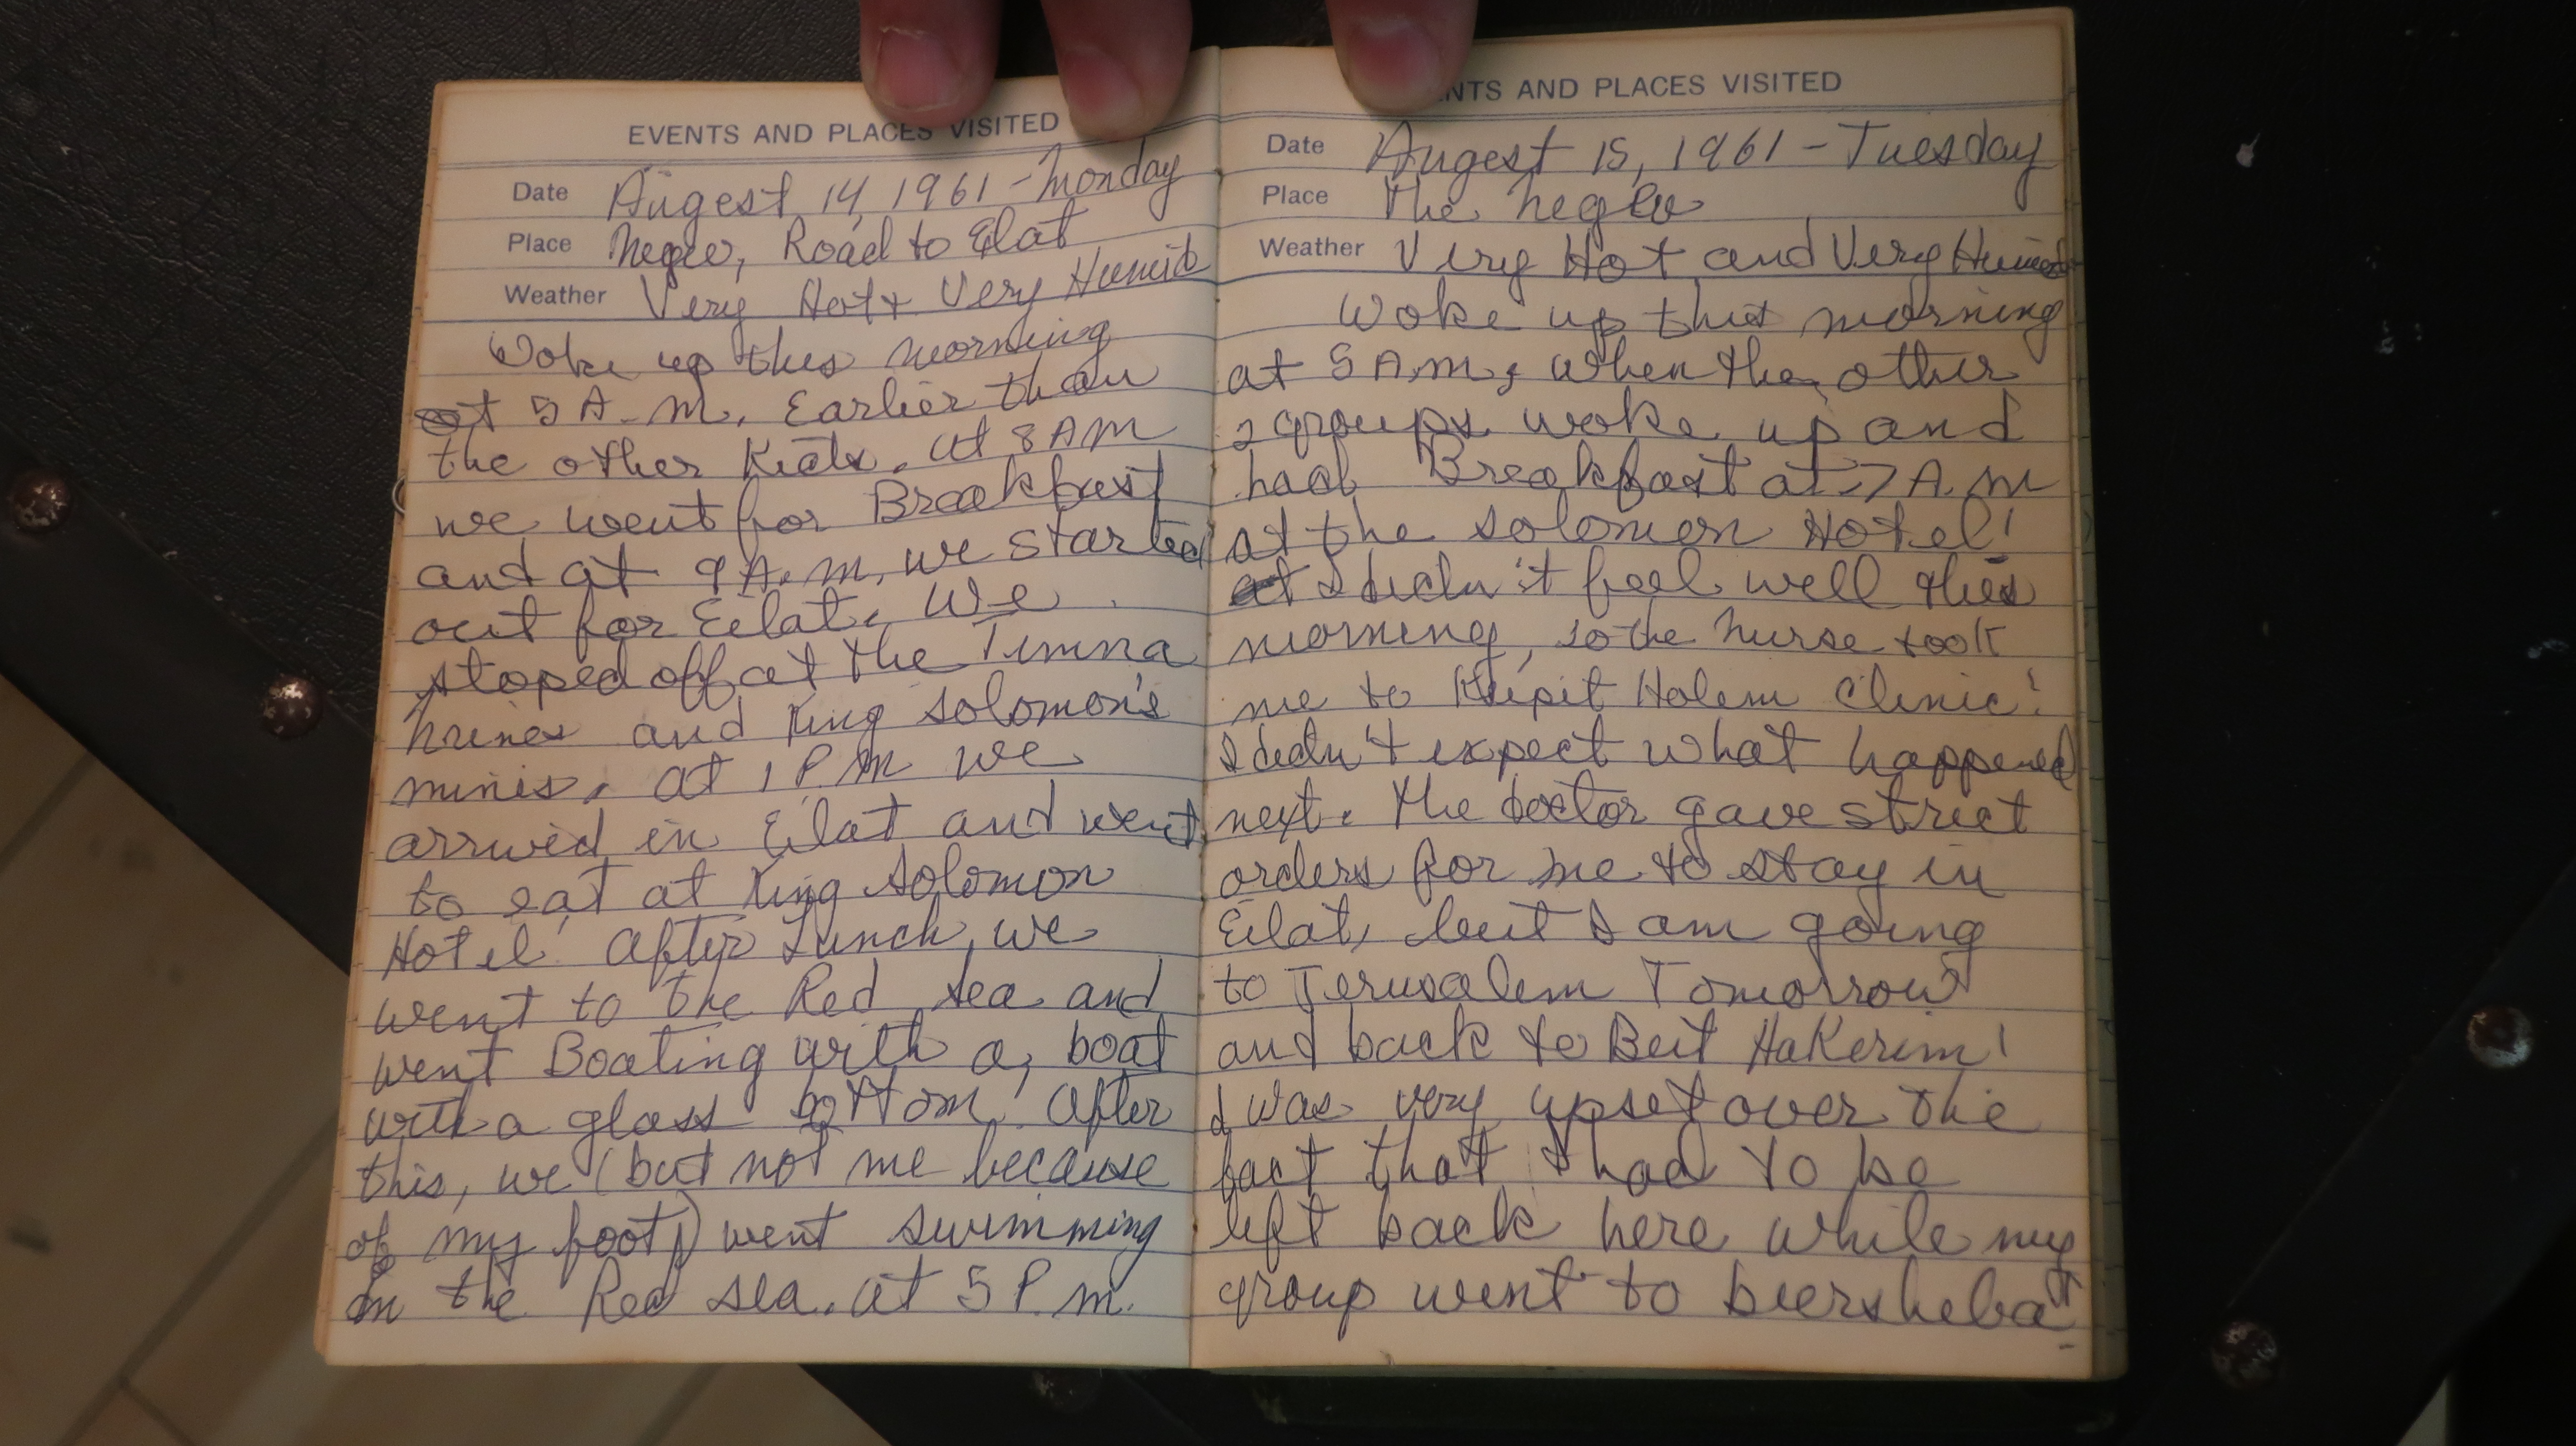 EVENTS AND PLACES VISITED
Date Augest 14, 1961 - Monday
Place Negev, Road to Eilat
Weather Very Hot + Very Humid
Woke up this morning
at 5 A.M. Earlier than
the other Kids. At 8 AM
we went for Breakfast
and at 9 A.M. we started
out for Eilat. We
stoped off at the Timna
mines and King Solomon's
mines. At 1 P.M we
arrived in Eilat and went
to eat at King Solomon
Hotel. After Lunch, we
went to the Red Sea and
went Boating with a, boat
with a glass bottom. After
this, we (but not me because
of my foot) went swimming
in the Red Sea. At 5 P.M.
NTS AND PLACES VISITED
Date Augest 15, 1961 - Tuesday
Place The Negev
Weather Very Hot and Very Humid
Woke up this morning
at 5 A.M., when the other
2 groups woke up and
had Breakfast at 7 A.M
at the Solomon Hotel!
I didn't feel well this
morning, so the Nurse took
me to Kupit Holem Clinic!
I didn't expect what happened
next. The doctor gave strict
orders for me to stay in
Eilat, but I am going
to Jerusalem Tomorrow
and back to Beit HaKerim!
I was very upset over the
fact that I had to be
left back here while my
group went to beersheba